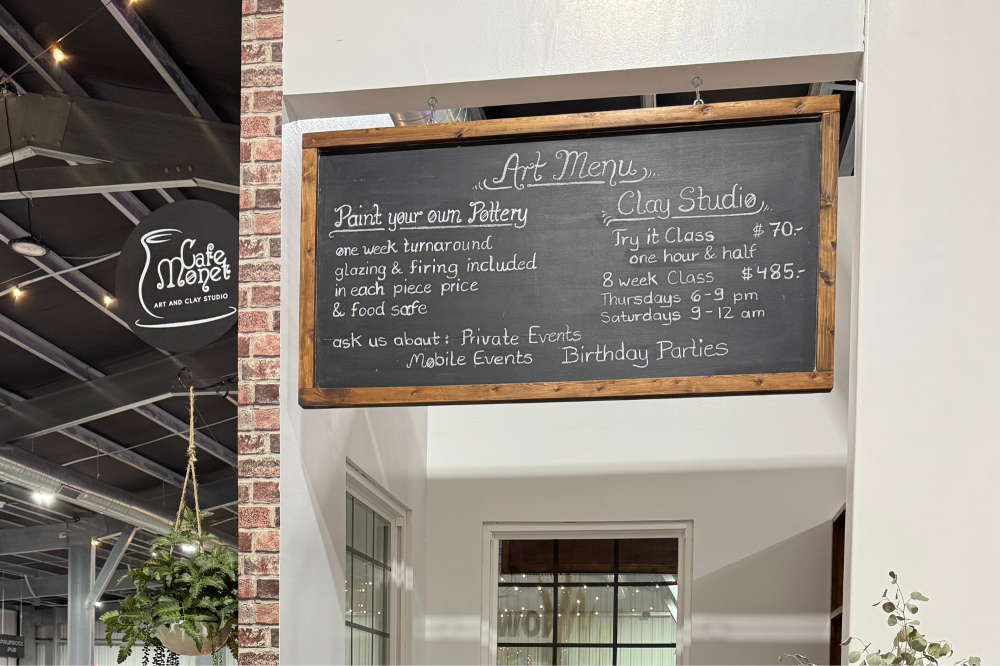 Art Menu
Paint your own Pottery
one week turnaround
glazing & firing included
in each piece price
& food safe
Clay Studio
Try it Class $70.-
one hour & half
8 week Class $485.-
Thursdays 6-9 pm
Saturdays 9-12 am
ask us about: Private Events
Mobile Events Birthday Parties
Cafe
Monet
ART AND CLAY STUDIO
PUB